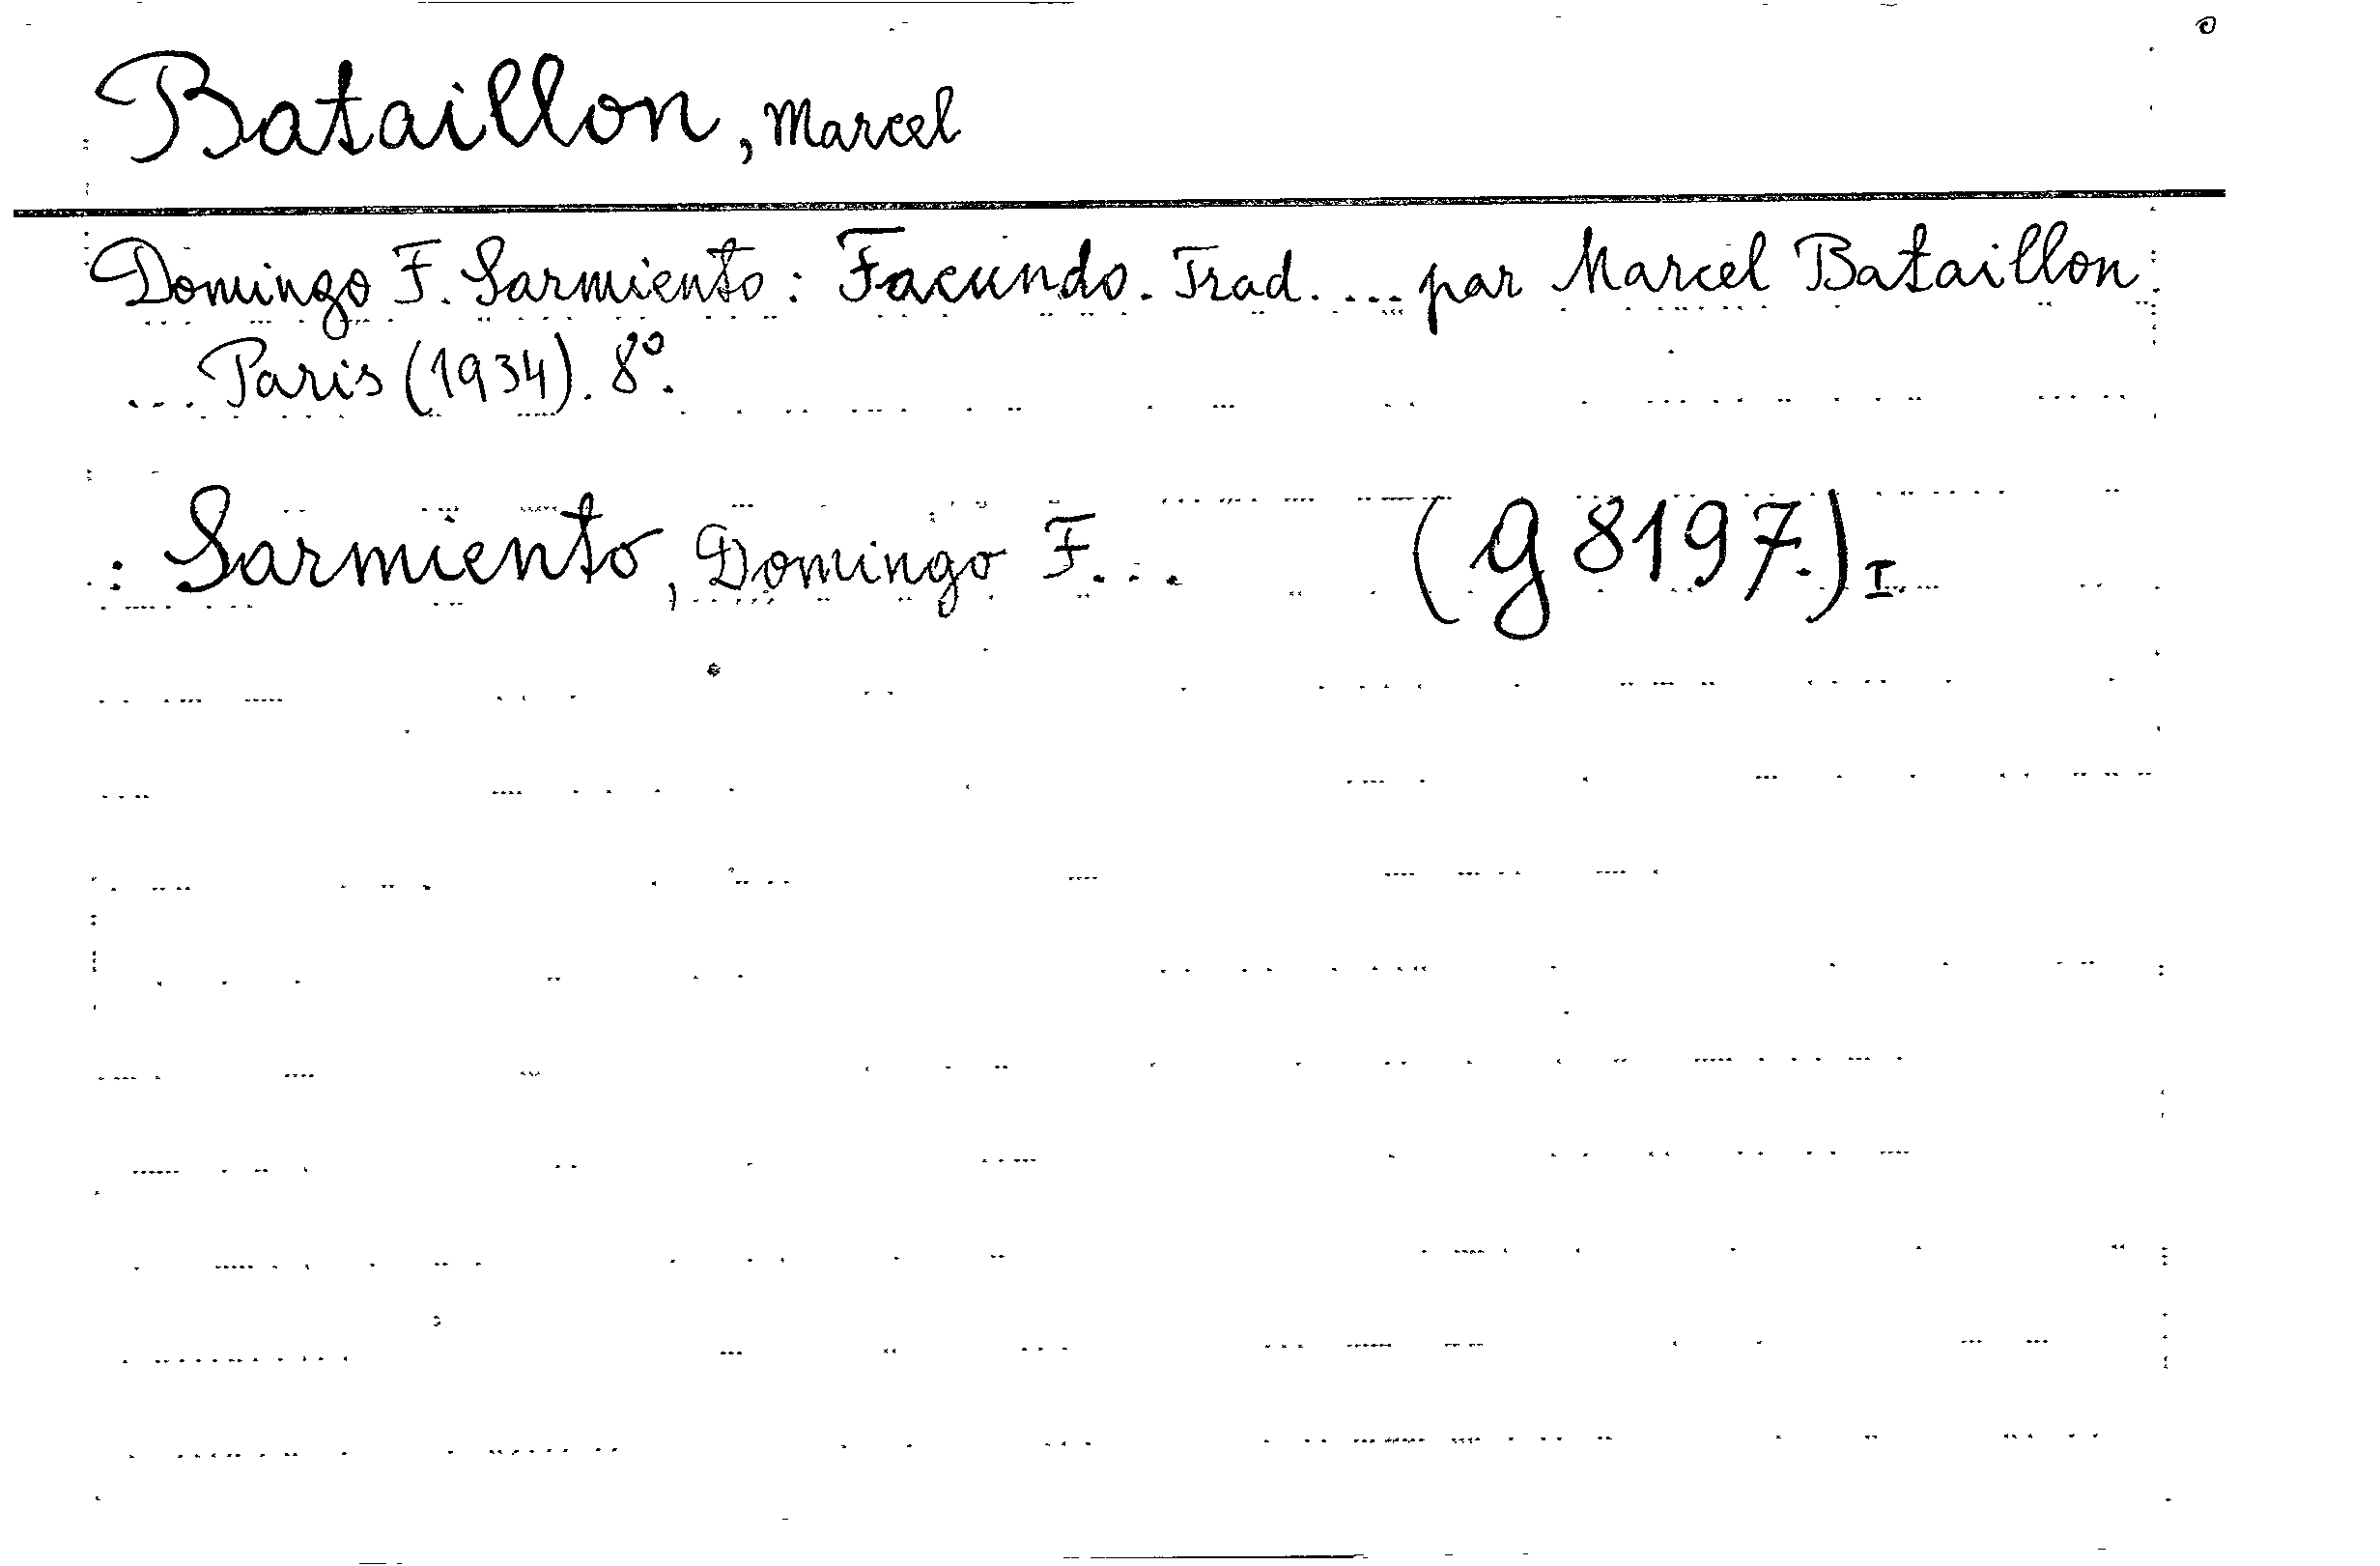 Bataillon, Marcel
Domingo F. Sarmiento: Facundo. Trad. ... par Marcel Bataillon
... Paris (1934). 8°.
: Sarmiento, Domingo F... (g 8197.) I.